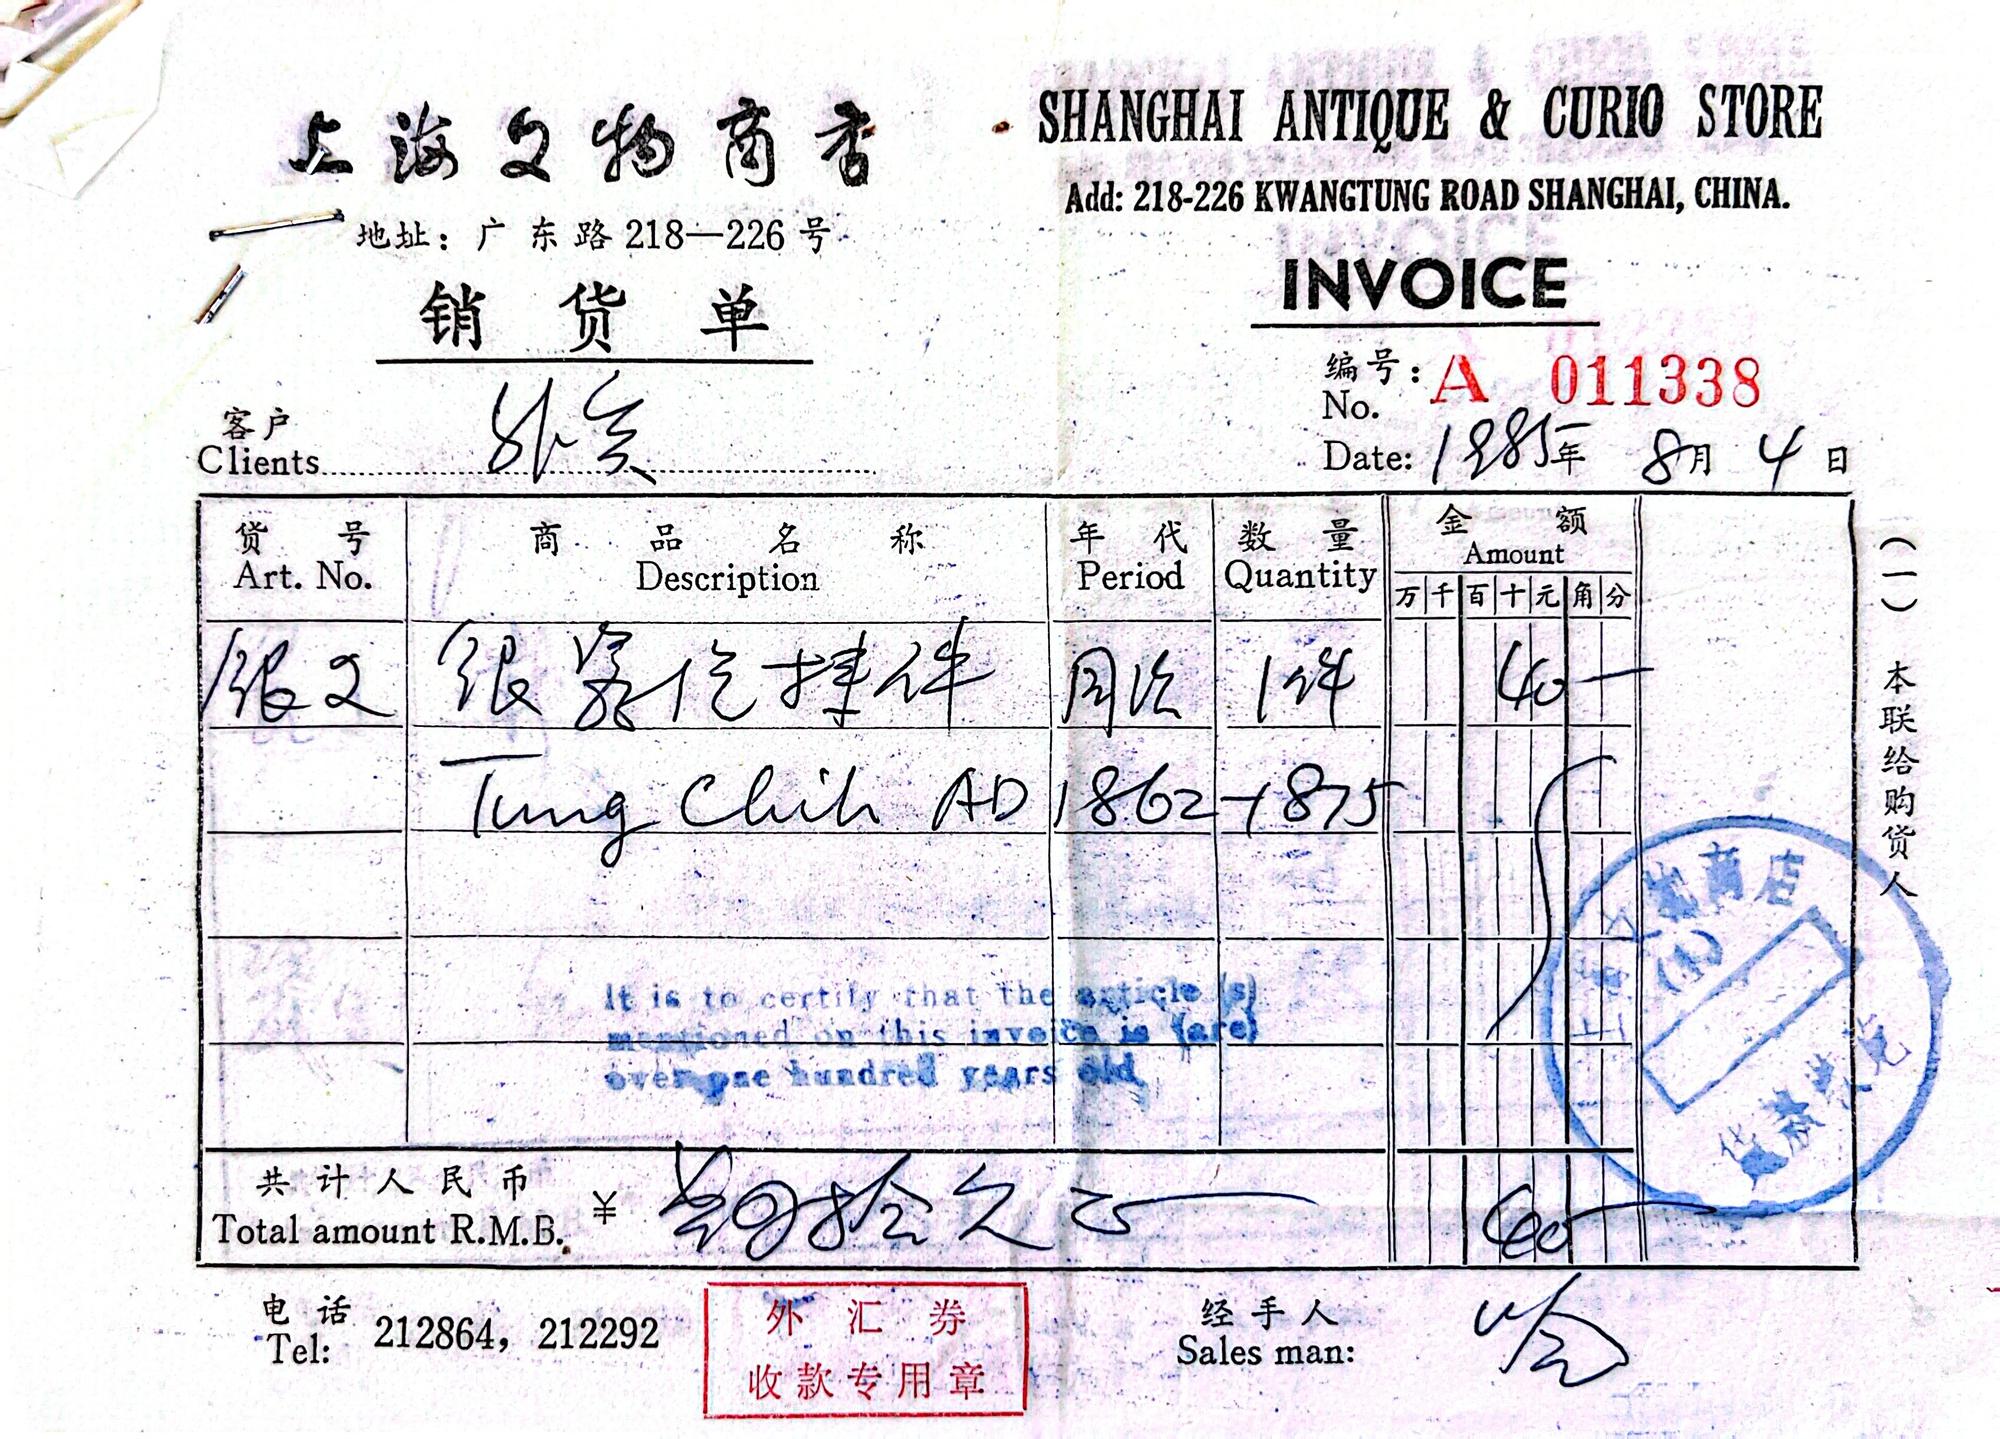 上海文物商店
SHANGHAI ANTIQUE & CURIO STORE
地址：广东路218—226号
Add: 218-226 KWANGTUNG ROAD SHANGHAI, CHINA.
销货单
INVOICE
编号：
No. A 011338
客户
Clients 外宾
Date: 1985年 8月 4日
货号 商品名称 年代 数量 金额
Art. No. Description Period Quantity Amount
万 千 百 十 元 角 分
银文 银 挂件 同治 1件 40—
Tung Chih AD 1862-1875
It is to certify that the article (s)
mentioned on this invoice is (are)
over one hundred years old
文物商店
(1)
共计人民币
Total amount R.M.B. ¥ 肆拾久 40
电话
Tel: 212864, 212292
外汇券
收款专用章
经手人
Sales man:
（一）本联给购货人